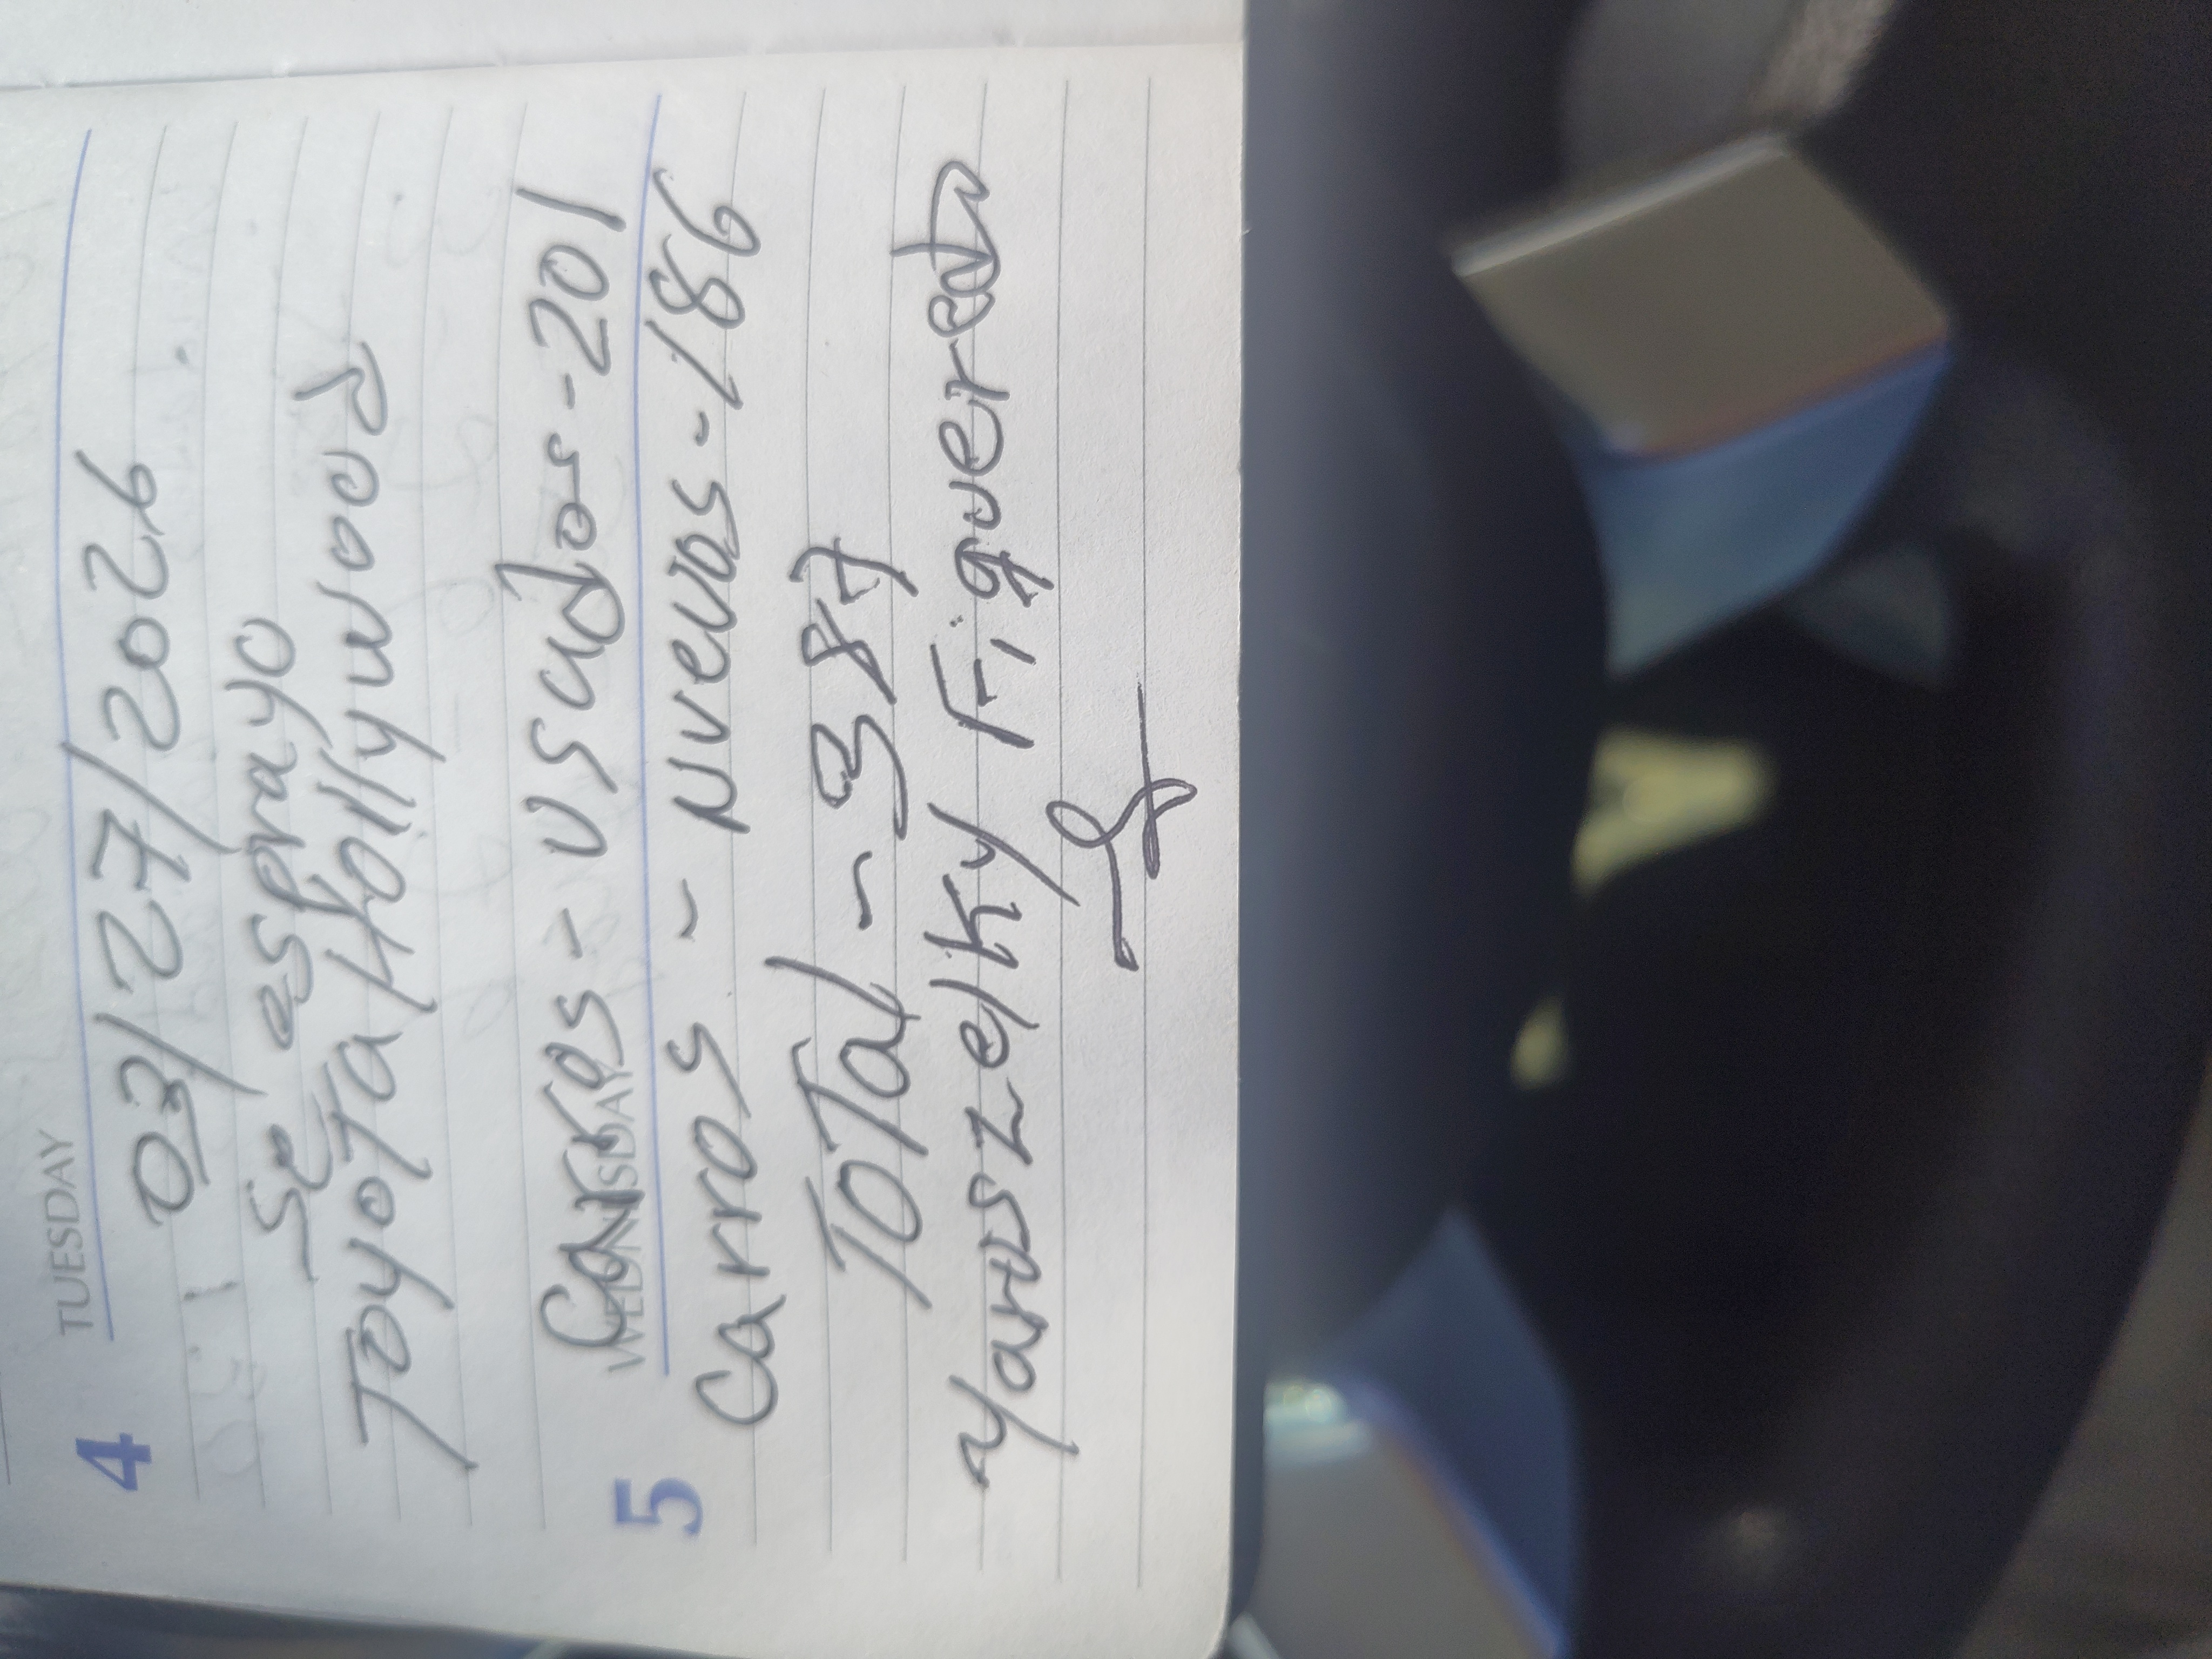 4 TUESDAY
03/27/2026
Se esprayo
Toyota Hollywood
Carros - usados - 201
WEDNESDAY
5
Carros - nuevos - 186
Total - 387
Yaroszelky Figueredo